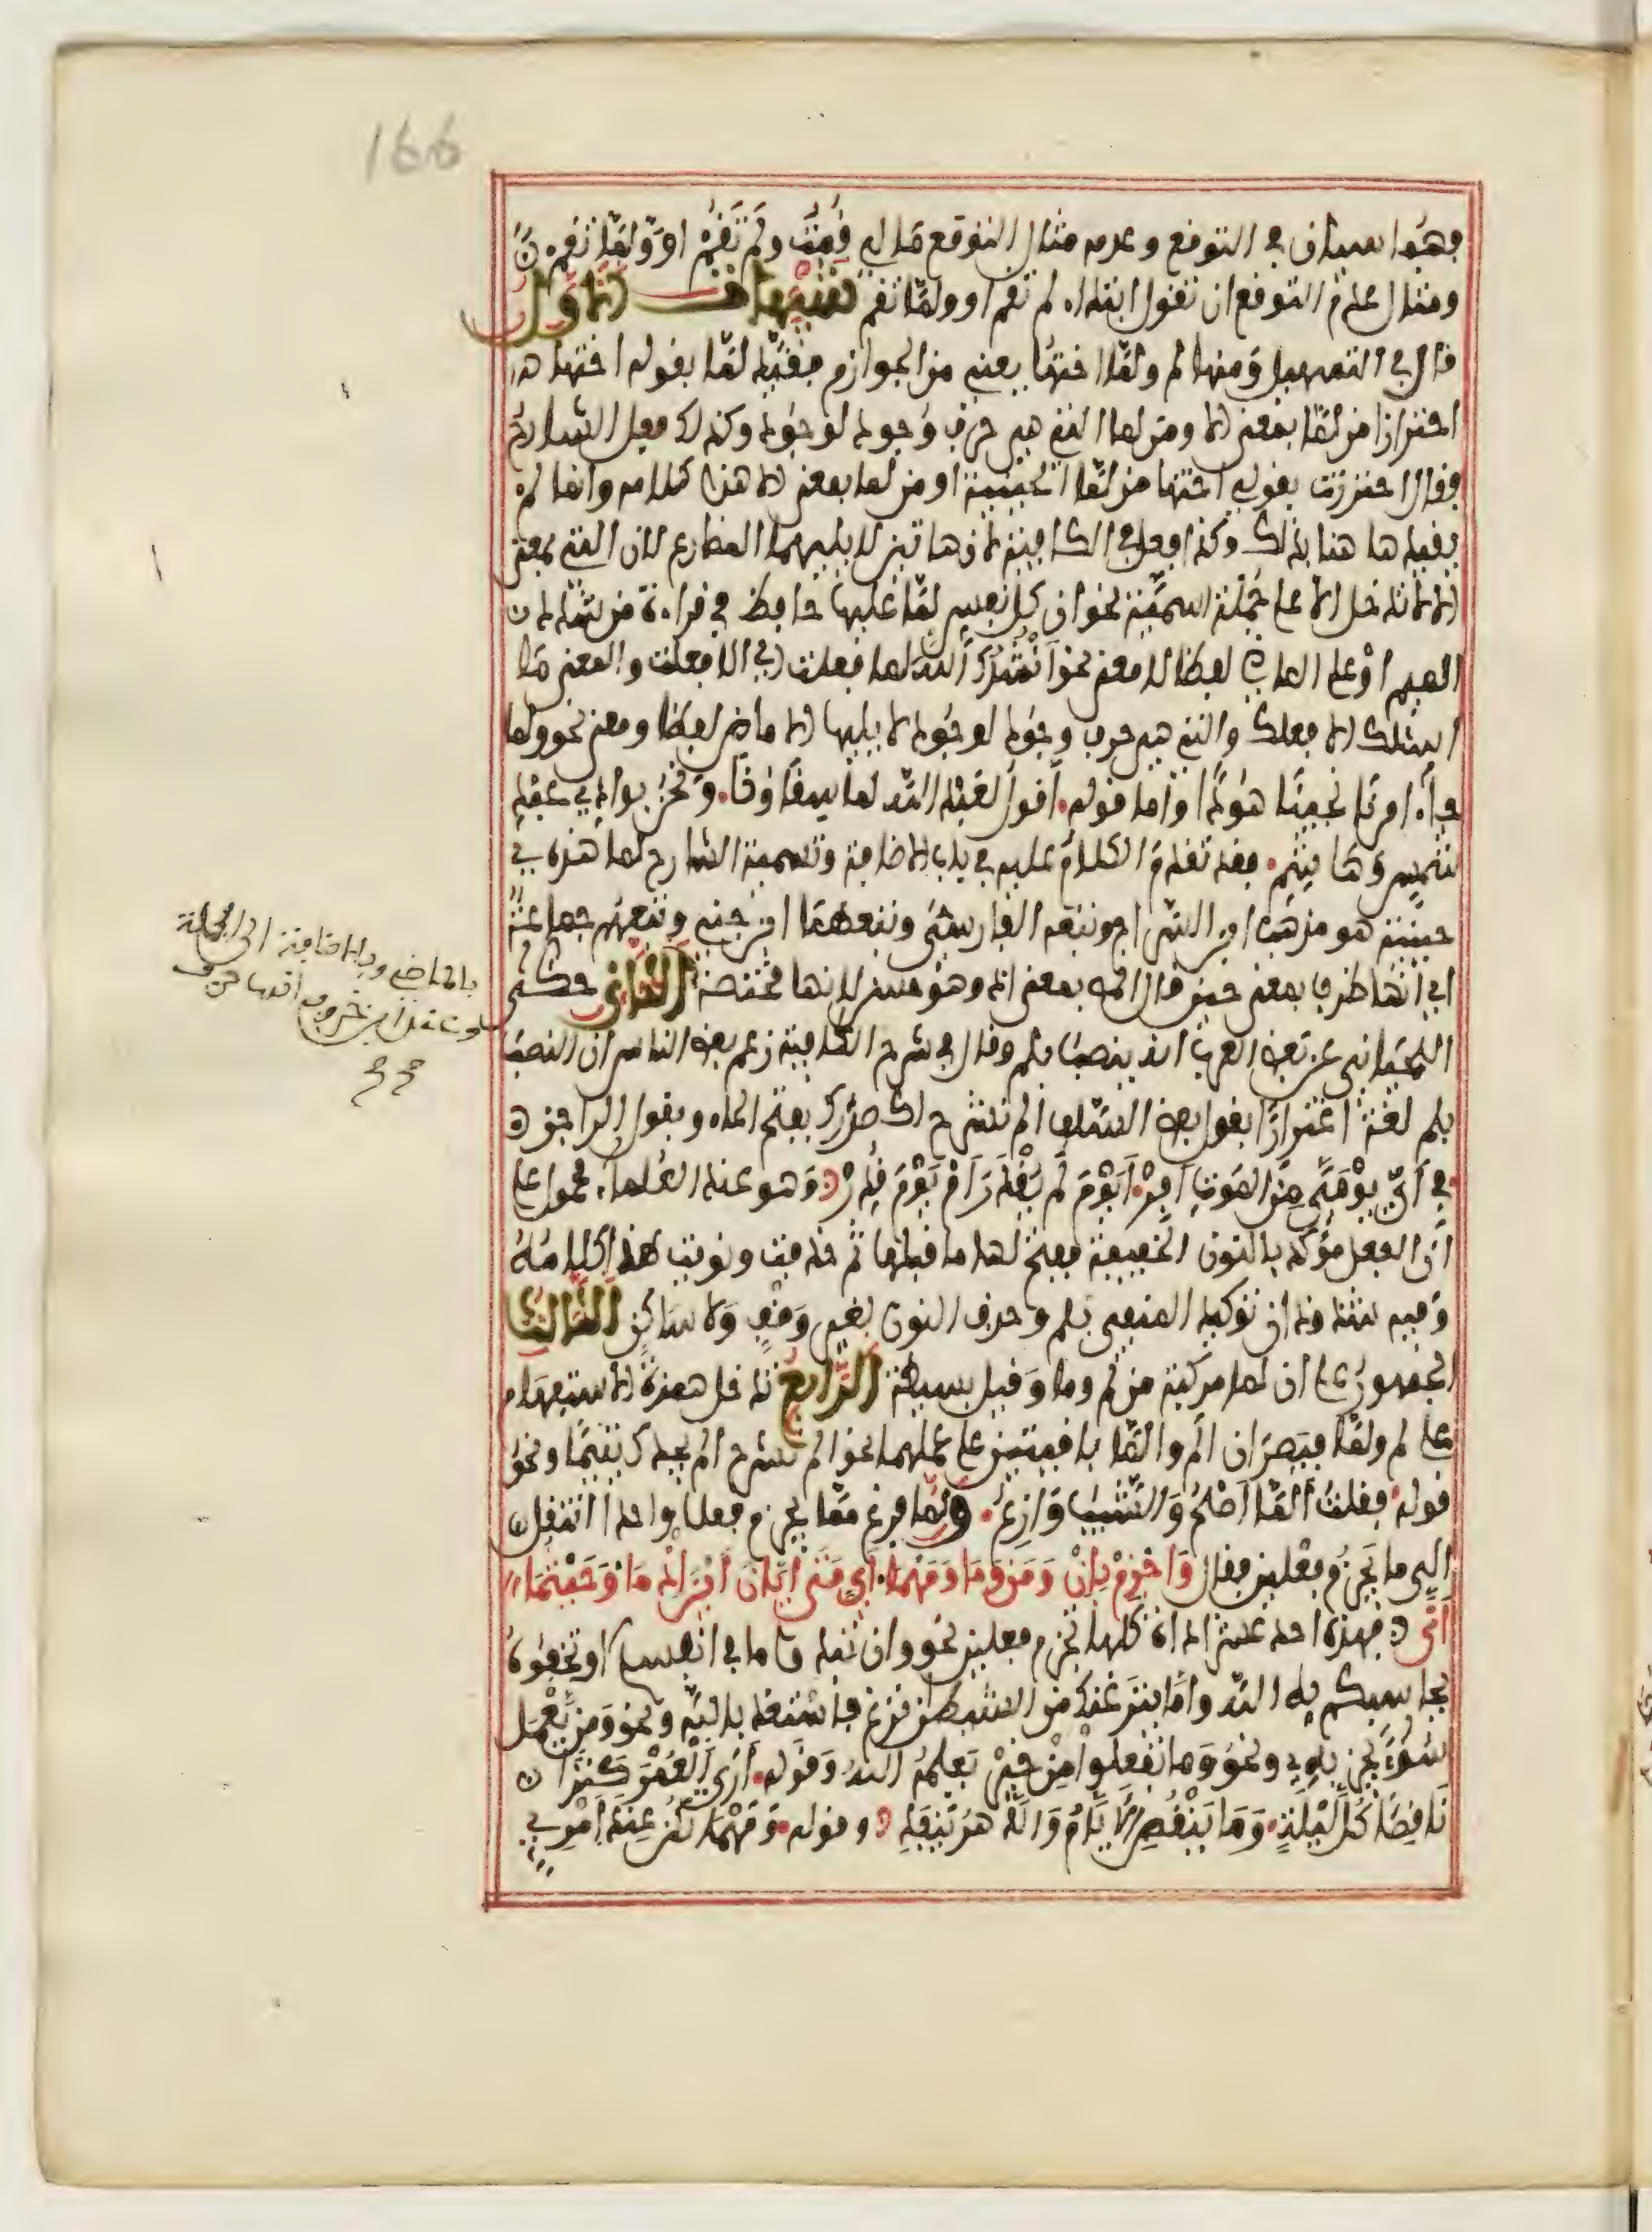 166
فهما سيان في التوقع وعدمه مثال التوقع مالي قمت ولم تقم او ولما تقم
ومثال عدم التوقع ان تقول ابتداء لم تقم او ولما تقم تنبيهات الاول
قال في التسهيل ومنها لم ولما اختها يعني من الجوازم فقيد لما بقوله اختها
احترازا من لما بمعنى الا ومن لما التي هي حرف وجود لوجود وكذلك فعل الشارح
فقال احترزت بقولي اختها من لما الحينية او من لما بمعنى الا هذا كلامه وانما لم
يقيدها هنا بذلك وكذا فعل في الكافية لان هاتين لا يليهما المضارع لان التي بمعنى
الا لا تدخل الا على جملة اسمية نحو ان كل نفس لما عليها حافظ في قراءة من شدد
الميم او على الماضي لفظا لا معنى نحو انشدك الله لما فعلت اي الا فعلت والمعنى ما
اسئلك الا فعلك والتي هي حرف وجود لوجود لا يليها الا ماض لفظا ومعنى نحو ولما
جاء امرنا نجينا هودا واما قوله اقول لعبد الله لما سقاؤنا ونحن بوادي عبد
شمس وهاشم فقد تقدم الكلام عليه في باب الاضافة وتسمية الشارح لما هذه
حينية هو مذهب ابن السراج وتبعه الفارسي وتبعهما ابن جني وتبعهم جماعة
اي انها ظرف بمعنى حين وقال المص بمعنى اذ وهو حسن لانها مختصة الثاني حكى
بالماضي وبالاضافة الى الجملة
اللحياني عن بعض العرب انه ينصب بلم وقال في شرح الكافية زعم بعض الناس ان النصب
بلم لغة اغترارا بقول بعض السلف الم نشرح لك صدرك بفتح الحاء وبقول الراجز
في اي يومي من الموت افر ايوم لم يقدر ام يوم قدر وهو عند العلماء محمول على
ان الفعل مؤكد بالنون الخفيفة ففتح لها ما قبلها ثم حذفت ونويت هذا كلامه
وفيه شذوذان توكيد المنفي بلم وحذف النون لغير وقف ولا ساكن الثالث
الجمهور على ان لما مركبة من لم وما وقيل بسيطة الرابع تدخل همزة الاستفهام
على لم ولما فيصيران الم والما باقيتين على عملهما نحو الم نشرح الم يجدك يتيما ونحو
قوله فقلت الما اصح والشيب وازع ولما فرغ مما يجزم فعلا واحدا انتقل
الى ما يجزم فعلين فقال واجزم بان ومن وما ومهما اي متى ايان اين اذ ما وحيثما
انى فهذه احد عشر اداة كلها تجزم فعلين نحو وان تبدوا ما في انفسكم او تخفوه
يحاسبكم به الله واما ينزغنك من الشيطان نزغ فاستعذ بالله ونحو ومن يعمل
سوءا يجز به ونحو وما تفعلوا من خير يعلمه الله وقوله ارى العمر كنزا
ناقصا كل ليلة وما تنقص الايام والدهر ينفد وقوله ومهما تكن عند امرئ